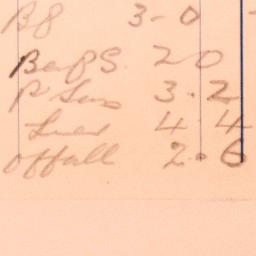 BB 3-0
Beef S. 20
P Sau 3.2
Liver 4.4
offall 2.6